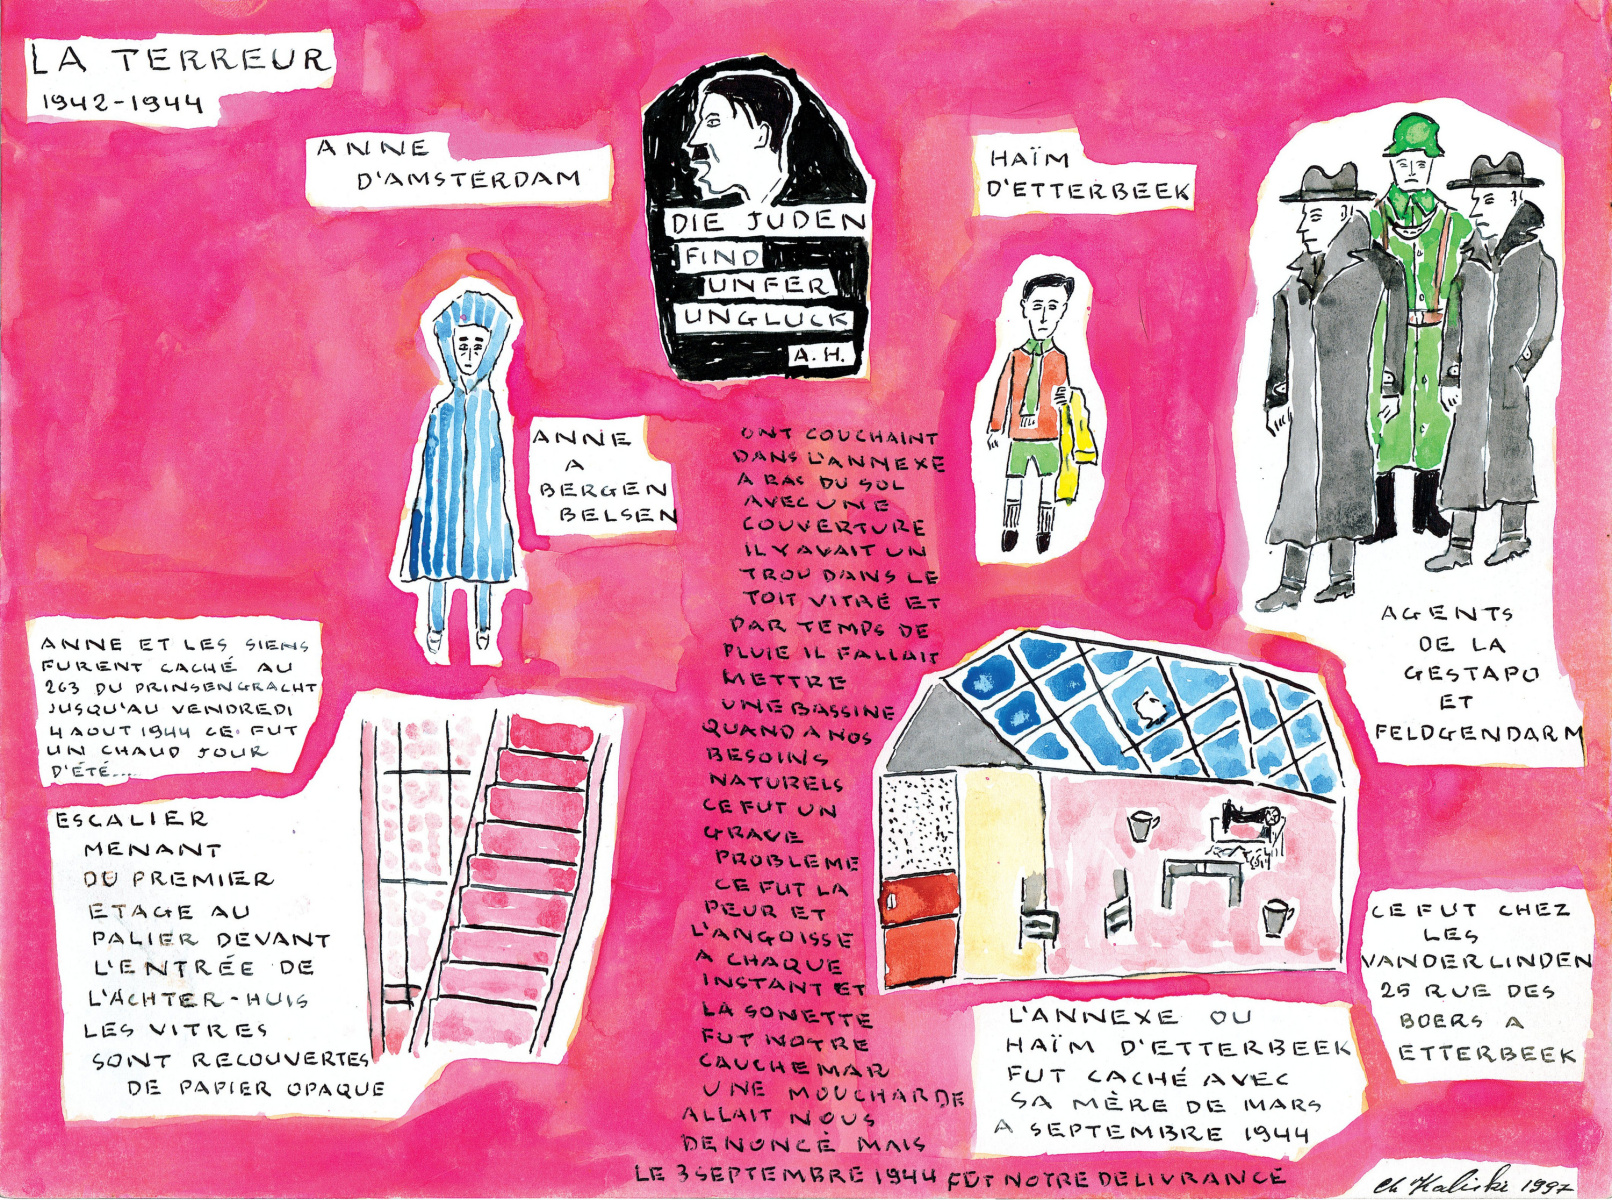 LA TERREUR
1942-1944
ANNE
D'AMSTERDAM
DIE JUDEN
FIND
UNFER
UNGLUCK
A.H.
HAÏM
D'ETTERBEEK
ANNE
A
BERGEN
BELSEN
AGENTS
DE LA
GESTAPO
ET
FELDGENDARM
ANNE ET LES SIENS
FURENT CACHÉ AU
263 DU PRINSENGRACHT
JUSQU'AU VENDREDI
4 AOUT 1944 CE FUT
UN CHAUD JOUR
D'ÉTÉ...
ESCALIER
MENANT
DU PREMIER
ETAGE AU
PALIER DEVANT
L'ENTRÉE DE
L'ACHTER-HUIS
LES VITRES
SONT RECOUVERTES
DE PAPIER OPAQUE
ONT COUCHAINT
DANS L'ANNEXE
A RAS DU SOL
AVEC UNE
COUVERTURE
IL Y AVAIT UN
TROU DANS LE
TOIT VITRÉ ET
PAR TEMPS DE
PLUIE IL FALLAIT
METTRE
UNE BASSINE
QUAND A NOS
BESOINS
NATURELS
CE FUT UN
GRAVE
PROBLEME
CE FUT LA
PEUR ET
L'ANGOISSE
A CHAQUE
INSTANT ET
LA SONETTE
FUT NOTRE
CAUCHEMAR
UNE MOUCHARDE
ALLAIT NOUS
DENONCÉ MAIS
LE 3 SEPTEMBRE 1944 FUT NOTRE DELIVRANCE
CE FUT CHEZ
LES
VANDERLINDEN
25 RUE DES
BOERS A
ETTERBEEK
L'ANNEXE OU
HAÏM D'ETTERBEEK
FUT CACHÉ AVEC
SA MÈRE DE MARS
A SEPTEMBRE 1944
Ch Kaliski 1997